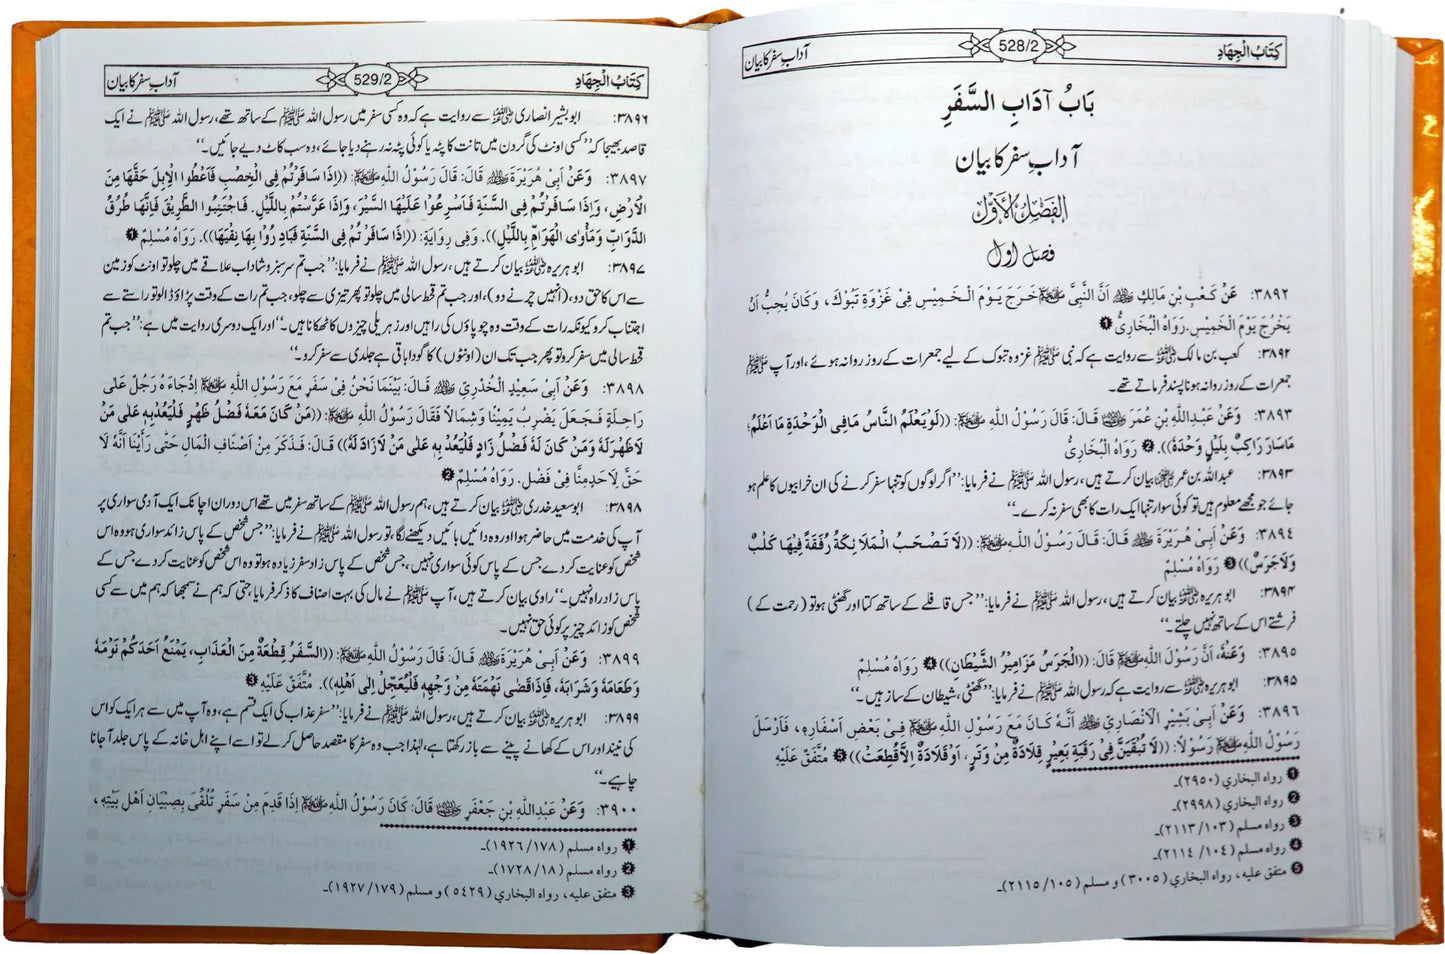 كِتَابُ الْجِهَادِ 528/2 آدابِ سفر کا بیان
بَابُ آدَابِ السَّفَرِ
آدابِ سفر کا بیان
الْفَصْلُ الْأَوَّلُ
فصل اول
٣٨٩٢: عَنْ كَعْبِ بْنِ مَالِكٍ ؓ أَنَّ النَّبِيَّ ﷺ خَرَجَ يَوْمَ الْخَمِيْسِ فِيْ غَزْوَةِ تَبُوْكَ، وَكَانَ يُحِبُّ اَنْ
يَخْرُجَ يَوْمَ الْخَمِيْسِ. رَوَاهُ الْبُخَارِيُّ ❶
۳۸۹۲: کعب بن مالک ؓ سے روایت ہے کہ نبی ﷺ غزوہ تبوک کے لیے جمعرات کے روز روانہ ہوئے، اور آپ ﷺ
جمعرات کے روز روانہ ہونا پسند فرماتے تھے۔
٣٨٩٣: وَعَنْ عَبْدِاللّٰهِ بْنِ عُمَرَ ؓ قَالَ: قَالَ رَسُوْلُ اللّٰهِ ﷺ: ((لَوْ يَعْلَمُ النَّاسُ مَا فِي الْوَحْدَةِ مَا اَعْلَمُ؛
مَا سَارَ رَاكِبٌ بِلَيْلٍ وَحْدَهٗ)). ❷ رَوَاهُ الْبُخَارِيُّ
۳۸۹۳: عبداللہ بن عمر ؓ بیان کرتے ہیں، رسول اللہ ﷺ نے فرمایا: ’’اگر لوگوں کو تنہا سفر کرنے کی ان خرابیوں کا علم ہو
جائے جو مجھے معلوم ہیں تو کوئی سوار تنہا ایک رات کا بھی سفر نہ کرے۔‘‘
٣٨٩٤: وَعَنْ اَبِيْ هُرَيْرَةَ ؓ قَالَ: قَالَ رَسُوْلُ اللّٰهِ ﷺ: ((لَا تَصْحَبُ الْمَلَائِكَةُ رُفْقَةً فِيْهَا كَلْبٌ
وَلَا جَرَسٌ)) ❸ رَوَاهُ مُسْلِمٌ
۳۸۹۴: ابوہریرہ ؓ بیان کرتے ہیں، رسول اللہ ﷺ نے فرمایا: ’’جس قافلے کے ساتھ کتا اور گھنٹی ہو تو (رحمت کے)
فرشتے اس کے ساتھ نہیں چلتے۔‘‘
٣٨٩٥: وَعَنْهُ، اَنَّ رَسُوْلَ اللّٰهِ ﷺ قَالَ: ((اَلْجَرَسُ مَزَامِيْرُ الشَّيْطَانِ)) ❹ رَوَاهُ مُسْلِمٌ
۳۸۹۵: ابوہریرہ ؓ سے روایت ہے کہ رسول اللہ ﷺ نے فرمایا: ’’گھنٹی، شیطان کے ساز ہیں۔‘‘
٣٨٩٦: وَعَنْ اَبِيْ بَشِيْرِ الْاَنْصَارِيِّ ؓ اَنَّهٗ كَانَ مَعَ رَسُوْلِ اللّٰهِ ﷺ فِيْ بَعْضِ اَسْفَارِهٖ، فَاَرْسَلَ
رَسُوْلُ اللّٰهِ ﷺ رَسُوْلًا: ((لَا تُبْقَيَنَّ فِيْ رَقَبَةِ بَعِيْرٍ قِلَادَةٌ مِنْ وَتَرٍ، اَوْ قِلَادَةٌ اِلَّا قُطِعَتْ)) ❺ مُتَّفَقٌ عَلَيْهِ
❶ رواه البخاري (٢٩٥٠)۔
❷ رواه البخاري (٢٩٩٨)۔
❸ رواه مسلم (١٠٣/ ٢١١٣)۔
❹ رواه مسلم (١٠٤/ ٢١١٤)۔
❺ متفق عليه، رواه البخاري (٣٠٠٥) و مسلم (١٠٥/ ٢١١٥)۔
كِتَابُ الْجِهَادِ 529/2 آدابِ سفر کا بیان
۳۸۹۶: ابو بشیر انصاری ؓ سے روایت ہے کہ وہ کسی سفر میں رسول اللہ ﷺ کے ساتھ تھے، رسول اللہ ﷺ نے ایک
قاصد بھیجا کہ ’’کسی اونٹ کی گردن میں تانت کا پٹہ یا کوئی پٹہ نہ رہنے دیا جائے، وہ سب کاٹ دیے جائیں۔‘‘
٣٨٩٧: وَعَنْ اَبِيْ هُرَيْرَةَ ؓ قَالَ: قَالَ رَسُوْلُ اللّٰهِ ﷺ: ((اِذَا سَافَرْتُمْ فِي الْخِصْبِ فَاَعْطُوا الْاِبِلَ حَقَّهَا مِنَ
الْاَرْضِ، وَاِذَا سَافَرْتُمْ فِي السَّنَةِ فَاَسْرِعُوْا عَلَيْهَا السَّيْرَ، وَاِذَا عَرَّسْتُمْ بِاللَّيْلِ. فَاجْتَنِبُوا الطَّرِيْقَ فَاِنَّهَا طُرُقُ
الدَّوَابِّ وَمَاْوَى الْهَوَامِّ بِاللَّيْلِ)). وَفِيْ رِوَايَةٍ: ((اِذَا سَافَرْتُمْ فِي السَّنَةِ فَبَادِرُوْا بِهَا نِقْيَهَا)). رَوَاهُ مُسْلِمٌ ❶
۳۸۹۷: ابوہریرہ ؓ بیان کرتے ہیں، رسول اللہ ﷺ نے فرمایا: ’’جب تم سرسبز و شاداب علاقے میں چلو تو اونٹ کو زمین
سے اس کا حق دو، (انہیں چرنے دو)، اور جب تم قحط سالی میں چلو تو پھر تیزی سے چلو، جب تم رات کے وقت پڑاؤ ڈالو تو راستے سے
اجتناب کرو کیونکہ رات کے وقت وہ چوپاؤں کی راہیں اور زہریلی چیزوں کا ٹھکانا ہیں۔‘‘ اور ایک دوسری روایت میں ہے: ’’جب تم
قحط سالی میں سفر کرو تو پھر جب تک ان (اونٹوں) کا گودا باقی ہے جلدی سے سفر کرو۔‘‘
٣٨٩٨: وَعَنْ اَبِيْ سَعِيْدِ الْخُدْرِيِّ ؓ قَالَ: بَيْنَمَا نَحْنُ فِيْ سَفَرٍ مَعَ رَسُوْلِ اللّٰهِ ﷺ اِذْ جَاءَهٗ رَجُلٌ عَلٰى
رَاحِلَةٍ فَجَعَلَ يَضْرِبُ يَمِيْنًا وَشِمَالًا فَقَالَ رَسُوْلُ اللّٰهِ ﷺ: ((مَنْ كَانَ مَعَهٗ فَضْلُ ظَهْرٍ فَلْيَعُدْ بِهٖ عَلٰى مَنْ
لَا ظَهْرَ لَهٗ وَمَنْ كَانَ لَهٗ فَضْلُ زَادٍ فَلْيَعُدْ بِهٖ عَلٰى مَنْ لَا زَادَ لَهٗ)) قَالَ: فَذَكَرَ مِنْ اَصْنَافِ الْمَالِ حَتّٰى رَاَيْنَا اَنَّهٗ لَا
حَقَّ لِاَحَدٍ مِنَّا فِيْ فَضْلٍ. رَوَاهُ مُسْلِمٌ ❷
۳۸۹۸: ابوسعید خدری ؓ بیان کرتے ہیں، ہم رسول اللہ ﷺ کے ساتھ سفر میں تھے اس دوران اچانک ایک آدمی سواری پر
آپ کی خدمت میں حاضر ہوا اور وہ دائیں بائیں دیکھنے لگا، تو رسول اللہ ﷺ نے فرمایا: ’’جس شخص کے پاس زائد سواری ہو وہ اس
شخص کو عنایت کر دے جس کے پاس کوئی سواری نہیں، جس شخص کے پاس زاد سفر زیادہ ہو تو وہ اس شخص کو عنایت کر دے جس کے
پاس زاد راہ نہیں۔‘‘ راوی بیان کرتے ہیں، آپ ﷺ نے مال کی بہت اصناف کا ذکر فرمایا، حتی کہ ہم نے سمجھا کہ ہم میں سے کسی
شخص کو زائد چیز پر کوئی حق نہیں۔
٣٨٩٩: وَعَنْ اَبِيْ هُرَيْرَةَ ؓ قَالَ: قَالَ رَسُوْلُ اللّٰهِ ﷺ: ((السَّفَرُ قِطْعَةٌ مِنَ الْعَذَابِ، يَمْنَعُ اَحَدَكُمْ نَوْمَهٗ
وَطَعَامَهٗ وَشَرَابَهٗ، فَاِذَا قَضٰى نَهْمَتَهٗ مِنْ وَجْهِهٖ فَلْيُعَجِّلْ اِلٰى اَهْلِهٖ)). مُتَّفَقٌ عَلَيْهِ ❸
۳۸۹۹: ابوہریرہ ؓ بیان کرتے ہیں، رسول اللہ ﷺ نے فرمایا: ’’سفر عذاب کی ایک قسم ہے، وہ آپ میں سے ہر ایک کو اس
کی نیند اور اس کے کھانے پینے سے باز رکھتا ہے، لہٰذا جب وہ سفر کا مقصد حاصل کر لے تو اسے اپنے اہل خانہ کے پاس جلد آ جانا
چاہیے۔‘‘
٣٩٠٠: وَعَنْ عَبْدِاللّٰهِ بْنِ جَعْفَرٍ ؓ قَالَ: كَانَ رَسُوْلُ اللّٰهِ ﷺ اِذَا قَدِمَ مِنْ سَفَرٍ تُلُقِّيَ بِصِبْيَانِ اَهْلِ بَيْتِهٖ،
❶ رواه مسلم (١٧٨/ ١٩٢٦)۔
❷ رواه مسلم (١٨/ ١٧٢٨)۔
❸ متفق عليه، رواه البخاري (٥٤٢٩) و مسلم (١٧٩/ ١٩٢٧)۔